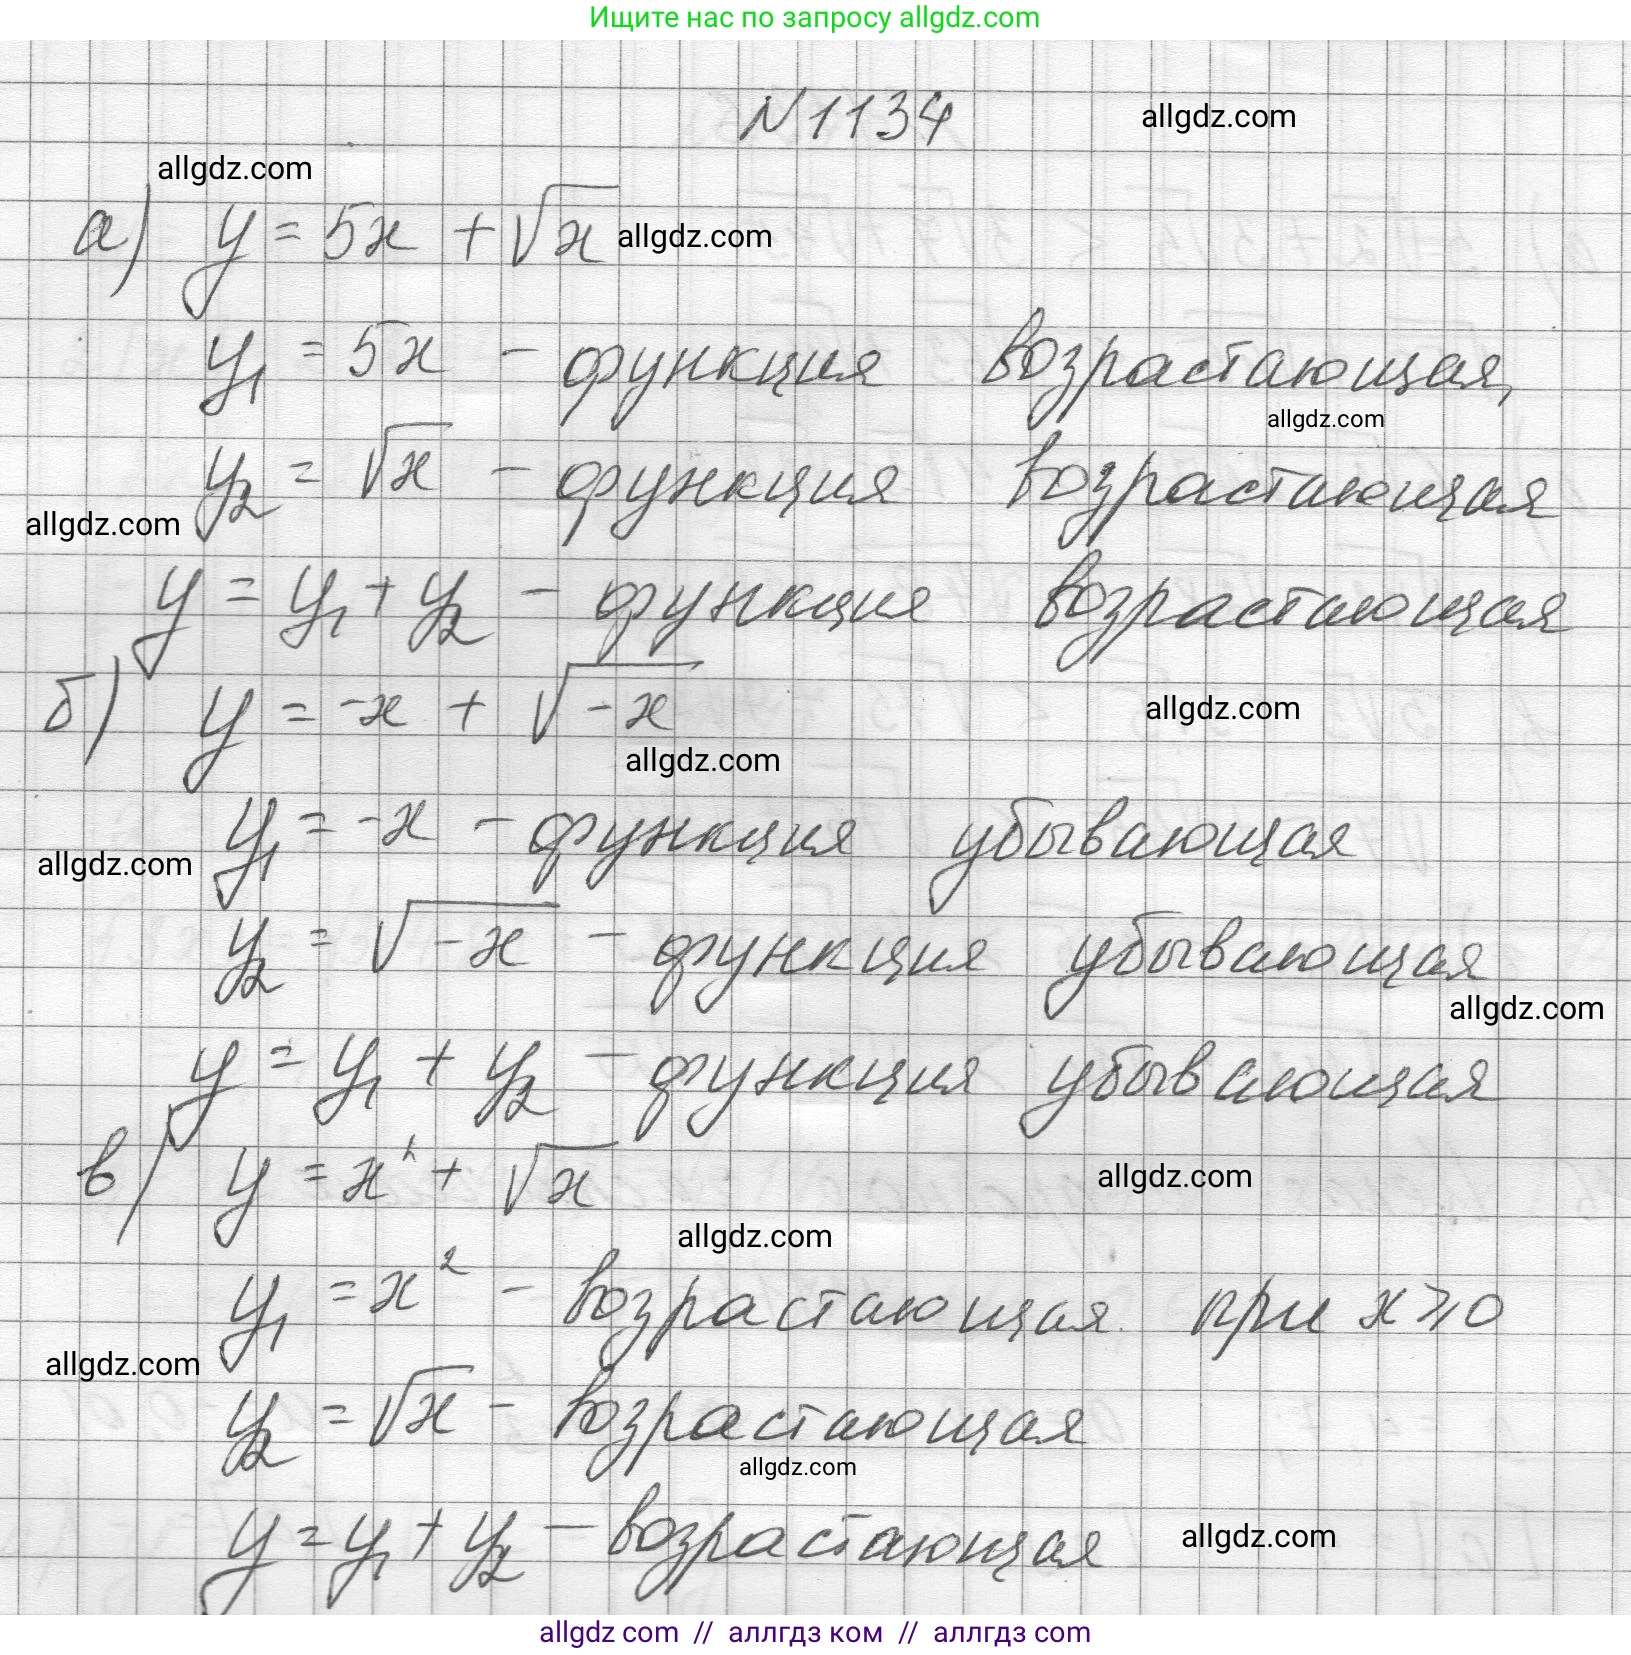 Ищите нас по запросу allgdz.com
N1134
allgdz.com
allgdz.com
а) y = 5x + √x
allgdz.com
y₁ = 5x – функция возрастающая,
allgdz.com
y₂ = √x – функция возрастающая
allgdz.com
y = y₁ + y₂ – функция возрастающая
б) y = -x + √-x
allgdz.com
allgdz.com
y₁ = -x – функция убывающая
allgdz.com
y₂ = √-x – функция убывающая
allgdz.com
y = y₁ + y₂ – функция убывающая
в) y = x² + √x
allgdz.com
allgdz.com
y₁ = x² – возрастающая при x ⩾ 0
allgdz.com
y₂ = √x – возрастающая
allgdz.com
y = y₁ + y₂ – возрастающая
allgdz.com
allgdz com // аллгдз ком // аллгдз com